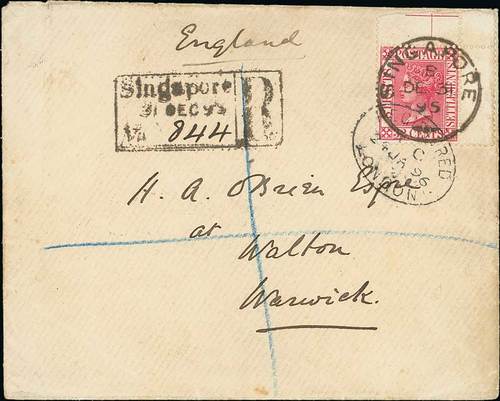 England
Singapore
31 DEC 95
No 844
R
SINGAPORE
B
DE 31
95
POSTAGE
CENTS
REGISTERED
24 JA 96
C
LONDON
H. A. O'Brien Esqre
at
Walton
Warwick.